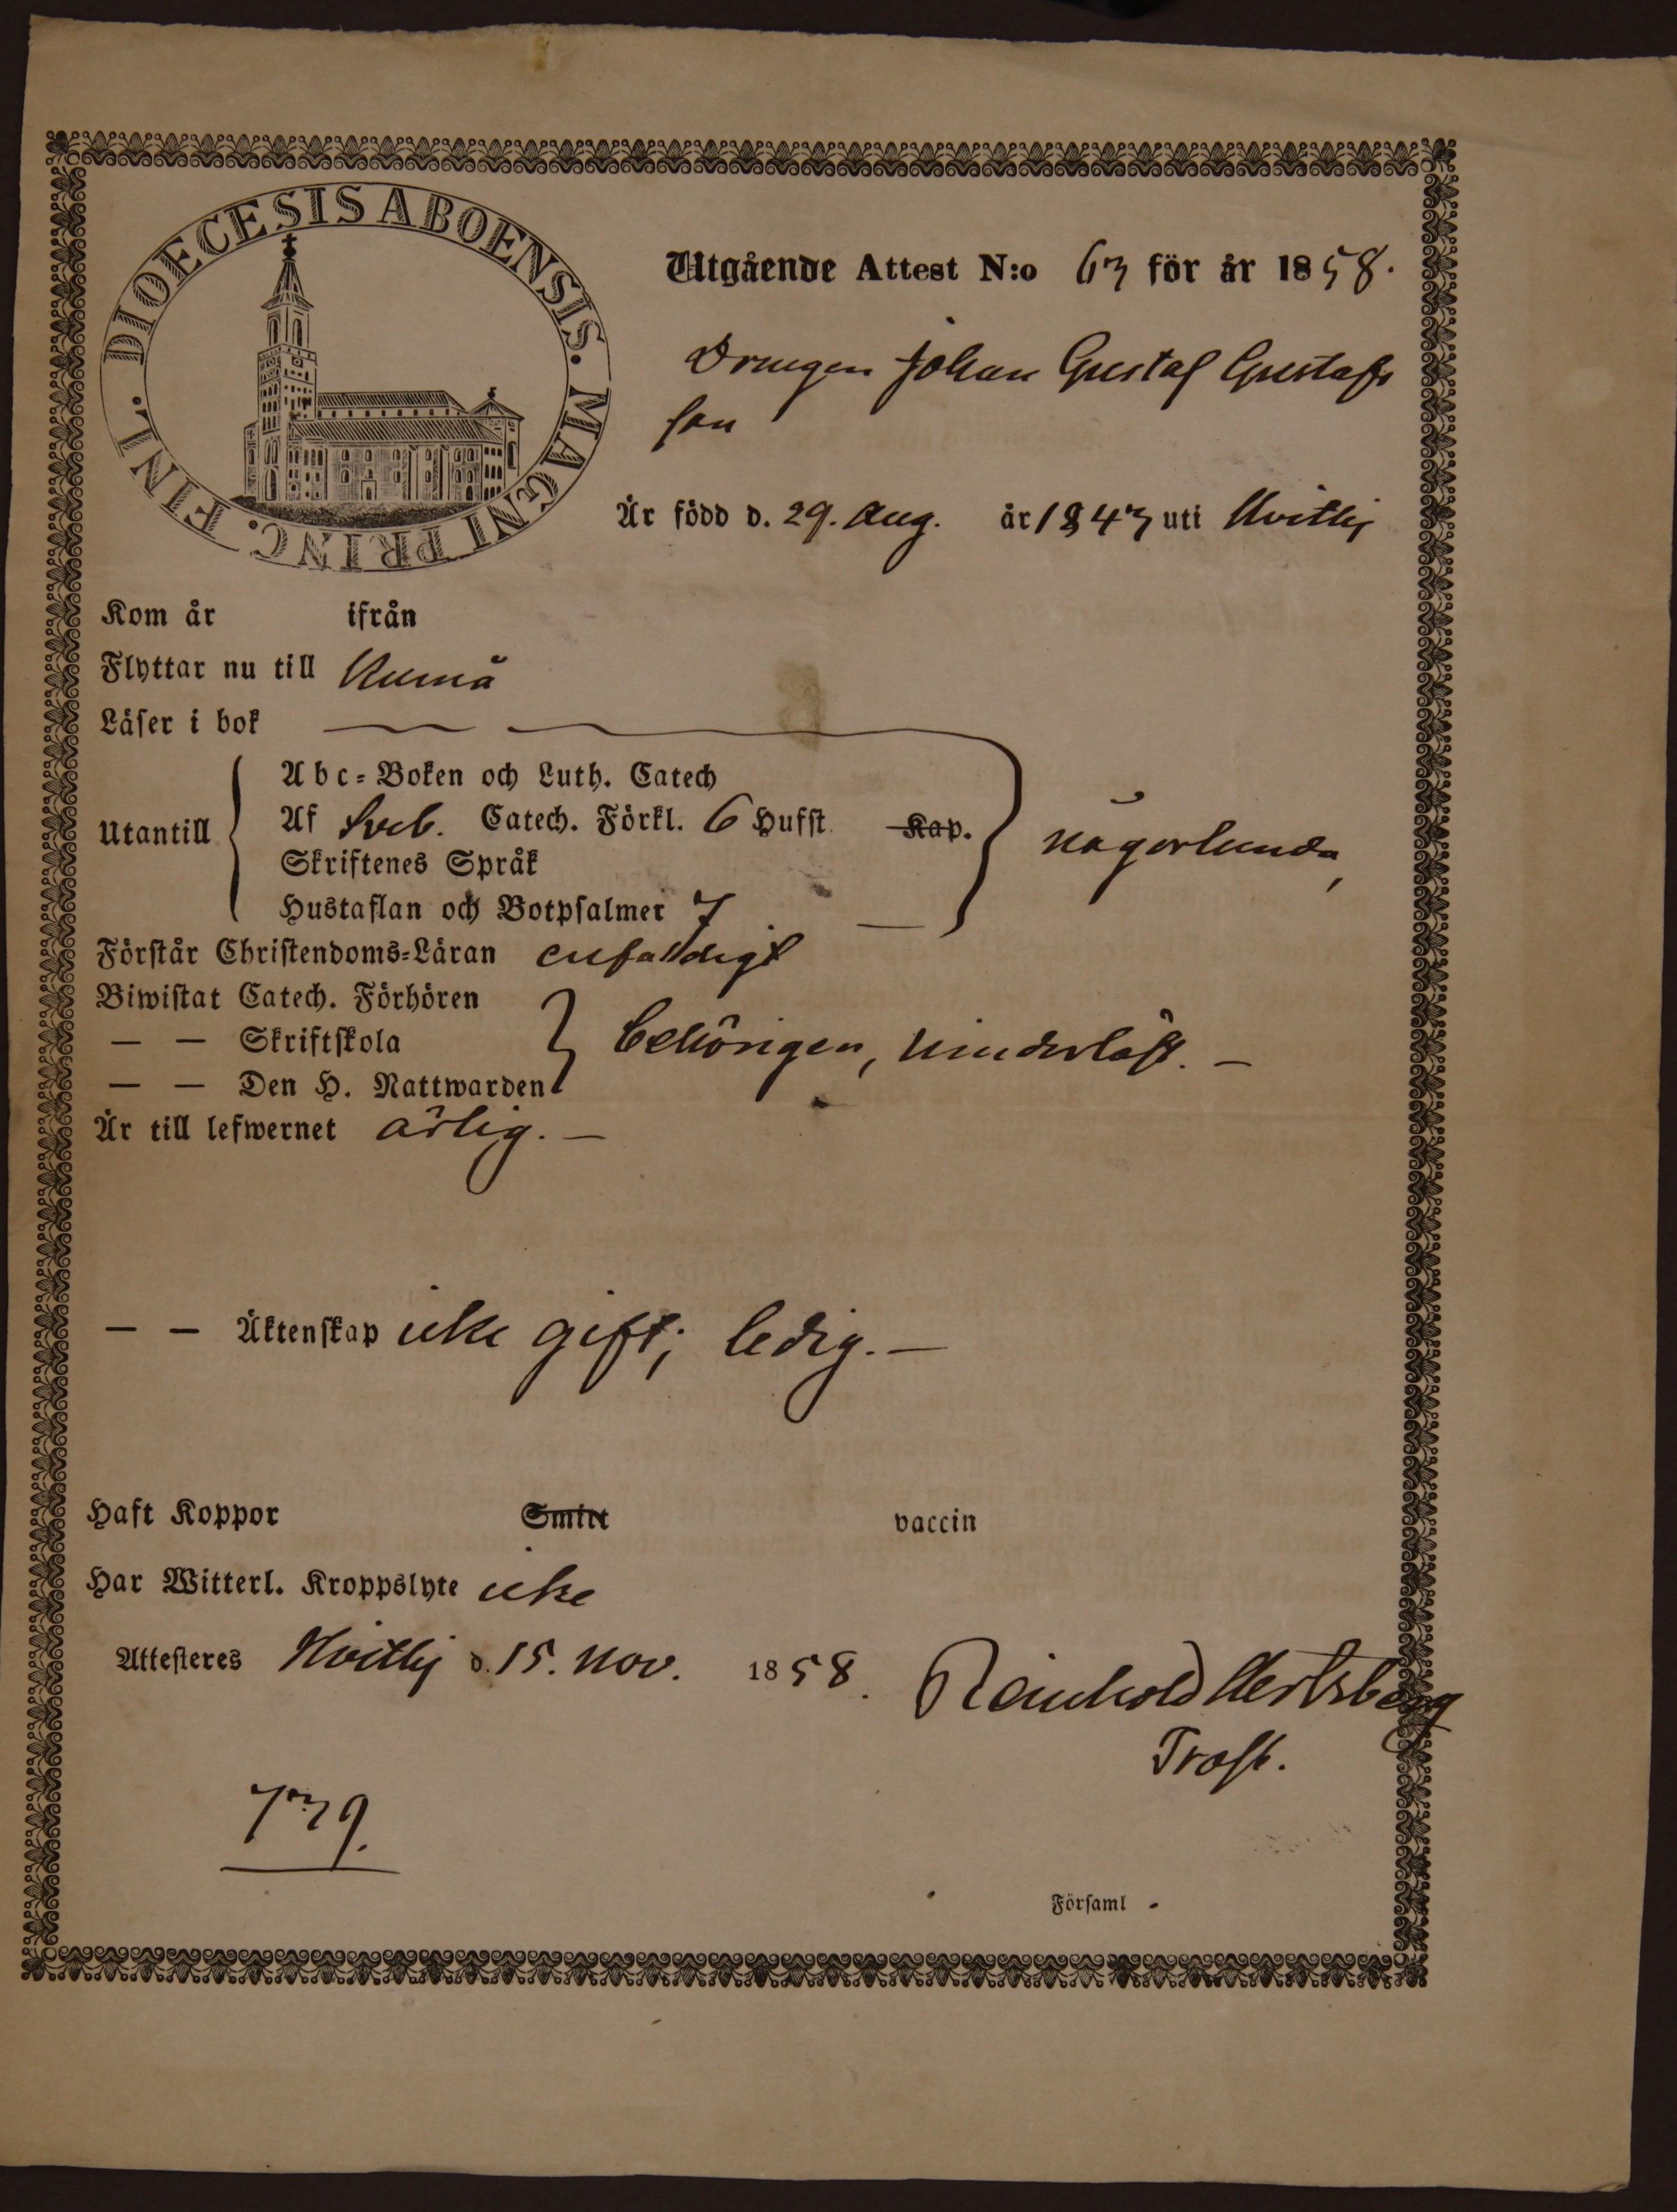 DIOECESIS ABOENSIS. MAGNI PRINC. FINL.
Utgående Attest N:o 63 för år 1858.
Drengen Johan Gustaf Gustafs
son
Är född d. 29. Aug. år 1843 uti Hvittis
Kom år ifrån
Flyttar nu till Kumå
Läser i bok
Utantill
Abc-Boken och Luth. Catech
Af Sveb. Catech. Förkl. 6 Hufst. Kap.
Skriftenes Språk
Hustaflan och Botpsalmer 7
någorlunda
Förstår Christendoms-Läran enfaldigt
Biwistat Catech. Förhören
— — Skriftskola
— — Den H. Nattwarden
behörigen, hinderlöst. —
Är till lefwernet ärlig. —
— — Äktenskap icke gift; ledig. —
Haft Koppor Smitt vaccin
Har Witterl. Kroppslyte icke
Attesteres Hvittis d. 15. Nov. 1858. Reinhold Hertzberg
Prost.
739.
Församl